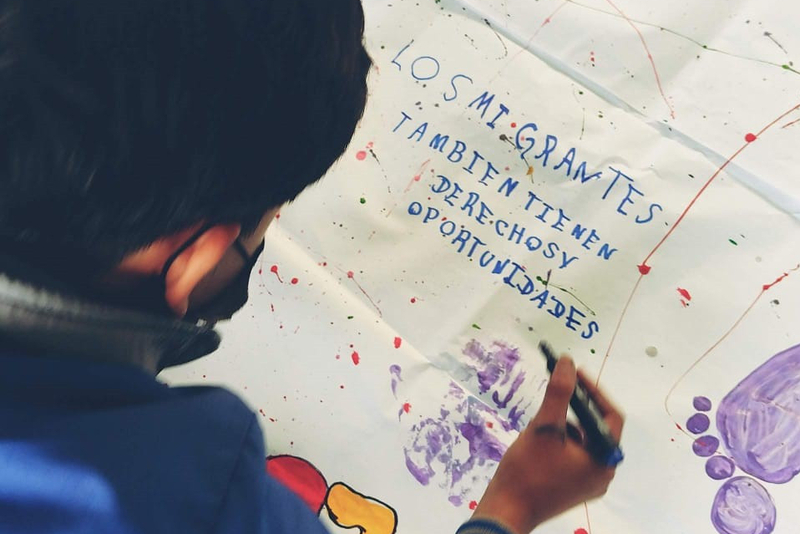 LOS MIGRANTES
TAMBIEN TIENEN
DERECHOS Y
OPORTUNIDADES